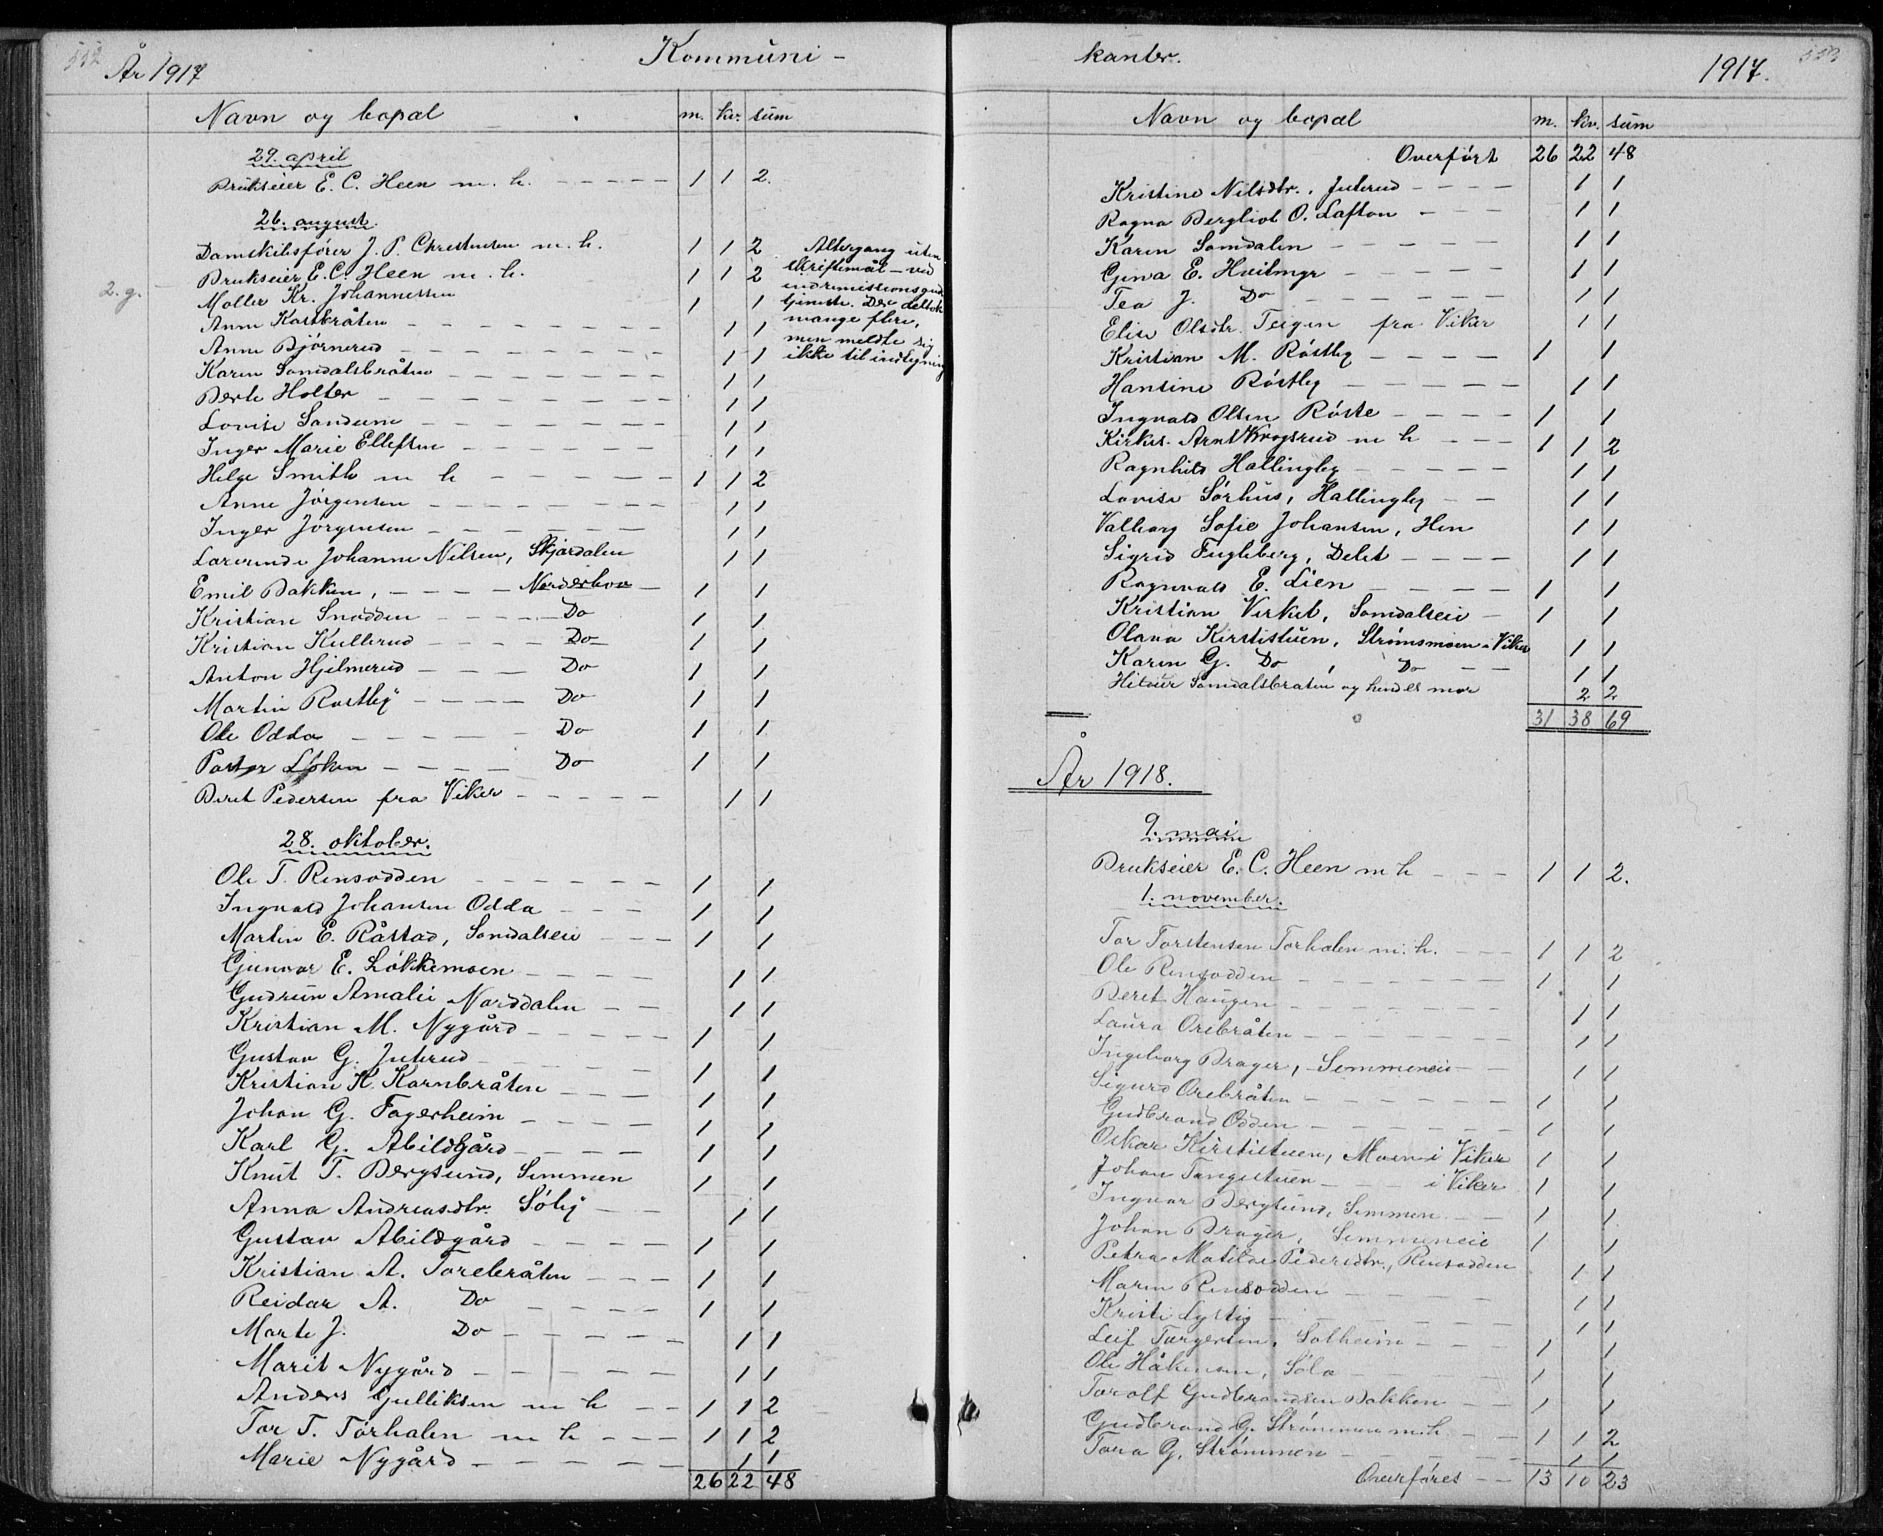 År 1917
Kommuni-
Navn og bopæl m. kv. sum
29. april
Brukseier E. C. Heen m. h. 1 1 2.
26. august
Damskibsfører J. P. Christensen m. h. 1 1 2
Brukseier E. C. Heen m. h. 1 1 2
2. g.
Møller Kr. Johannessen 1 1
Anne Kastbråten 1 1
Anne Bjørnerud 1 1
Karen Somdalsbråten 1 1
Berte Holter 1 1
Lovise Sandum 1 1
Inger Marie Ellefsen 1 1
Helge Smith m h 1 1 2
Anne Jörgensen 1 1
Inger Jörgensen 1 1
Lærerinde Johanne Nilsen, Skjærdalen 1 1
Emil Bakken, Norderhov 1 1
Kristian Snadden Do 1 1
Kristian Kullerud Do 1 1
Anton Hjelmerud Do 1 1
Martin Rastby Do 1 1
Ole Odda Do 1 1
Pastor Løken Do 1 1
Beret Pedersen fra Viker 1 1
Altergang uten
skriftemål – ved
indremissionsguds
tjeneste. Der deltok
mange flere,
men meldte sig
ikke til indtegning
28. oktober.
Ole T. Rensodden 1 1
Ingvald Johansen Odda 1 1
Martin E. Råstad, Somdalseie 1 1
Gunvor E. Løkkemoen 1 1
Gudrun Amalie Norddalen 1 1
Kristian M. Nygård 1 1
Gustav G. Juterud 1 1
Kristian K. Kornbråten 1 1
Johan G. Fagerheim 1 1
Karl G. Abildgård 1 1
Knut T. Bergsund, Semmen 1 1
Anna Andreasdtr. Søby 1 1
Gustav Abildgård 1 1
Kristian A. Torebråten 1 1
Reidar A. Do 1 1
Marte J. Do 1 1
Marit Nygård 1 1
Anders Gulliksen m h 1 1 2
Tor T. Torhalen m h 1 1 2
Marie Nygård 1 1
26 22 48
kanter.
1917.
Navn og bopæl m. kv. sum
Overført 26 22 48
Kristine Nilsdtr. Juterud 1 1
Ragna Bergliot O. Lafton 1 1
Karen Somdalen 1 1
Gina E. Hvilmyr 1 1
Tea J. Do 1 1
Elise Olsdtr. Teigen fra Viker 1 1
Kristian M. Röstby 1 1
Hansine Röstby 1 1
Ingvald Olsen Røste 1 1
Kirkes. Arnt Krogsrud m h 1 1 2
Ragnhild Hallingby 1 1
Lovise Sørhus, Hallingby 1 1
Valborg Sofie Johansen, Hen 1 1
Sigrid Fugleberg, Delet 1 1
Ragnvald E. Lien 1 1
Kristian Virket, Somdalseie 1 1
Olava Kirstistuen, Strømsmoen i Viker 1 1
Karen G. Do, Do 1 1
Somdalsbråten og hendes mor 2 2
31 38 69
År 1918.
9. mai
Brukseier E. C. Heen m h 1 1 2.
1. november.
Tor Torstensen Torhalen m. h. 1 1 2
Ole Rensodden 1 1
Beret Haugen 1 1
Laura Orebråten 1 1
Ingeborg Brager, Semmeneie 1 1
Sigurd Orebråten 1 1
Gudbrand Odden 1 1
Oskar Kirstistuen, Moen i Viker 1 1
Johan Tangestuen i Viker 1 1
Ingvar Bergsund, Semmen 1 1
Johan Brager, Semmeneie 1 1
Petra Matilde Pedersdtr., Rensodden 1 1
Maren Rensodden 1 1
Kristi Lystig 1 1
Leif Torgersen, Solheim 1 1
Ole Håkensen, Søla 1 1
Torolf Gudbrandsen Bakken 1 1
Gudbrand G. Strømmen m. h. 1 1 2
Tora G. Strømmen 1 1
Overføres 13 10 23